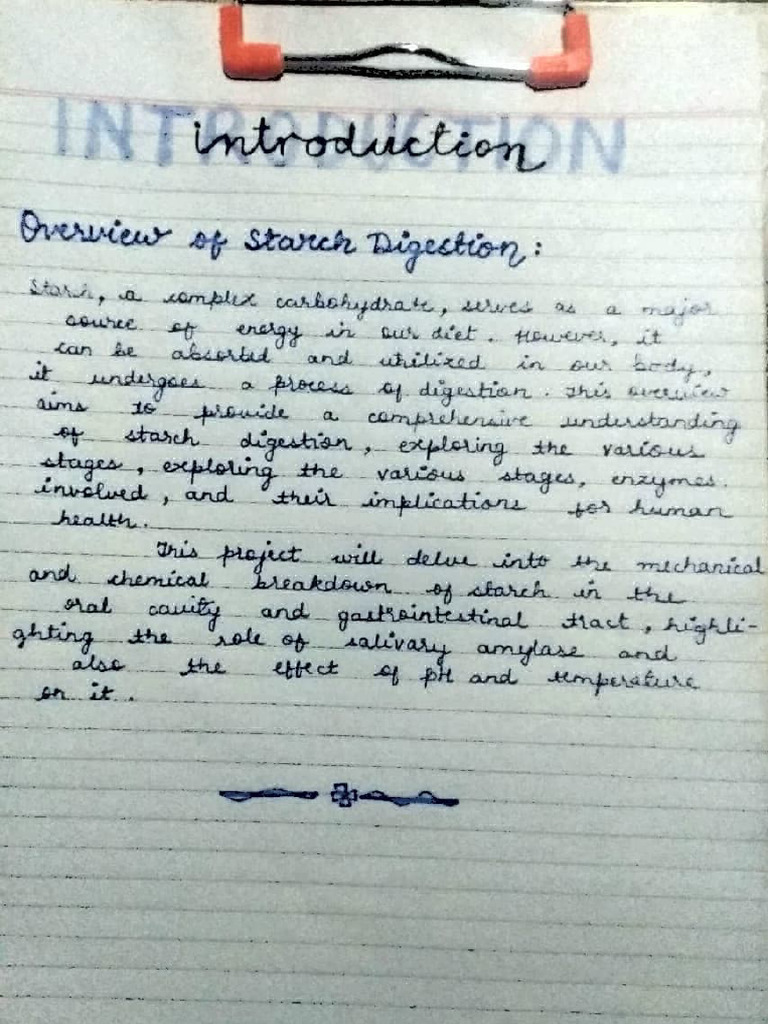 INTRODUCTION
introduction
Overview of Starch Digestion:
Starch, a complex carbohydrate, serves as a major
source of energy in our diet. However, it
can be absorbed and utilized in our body,
it undergoes a process of digestion. This overview
aims to provide a comprehensive understanding
of starch digestion, exploring the various
stages, exploring the various stages, enzymes.
involved, and their implications for human
health.
This project will delve into the mechanical
and chemical breakdown of starch in the
oral cavity and gastrointestinal tract, highli-
ghting the role of salivary amylase and
also the effect of pH and temperature
on it.